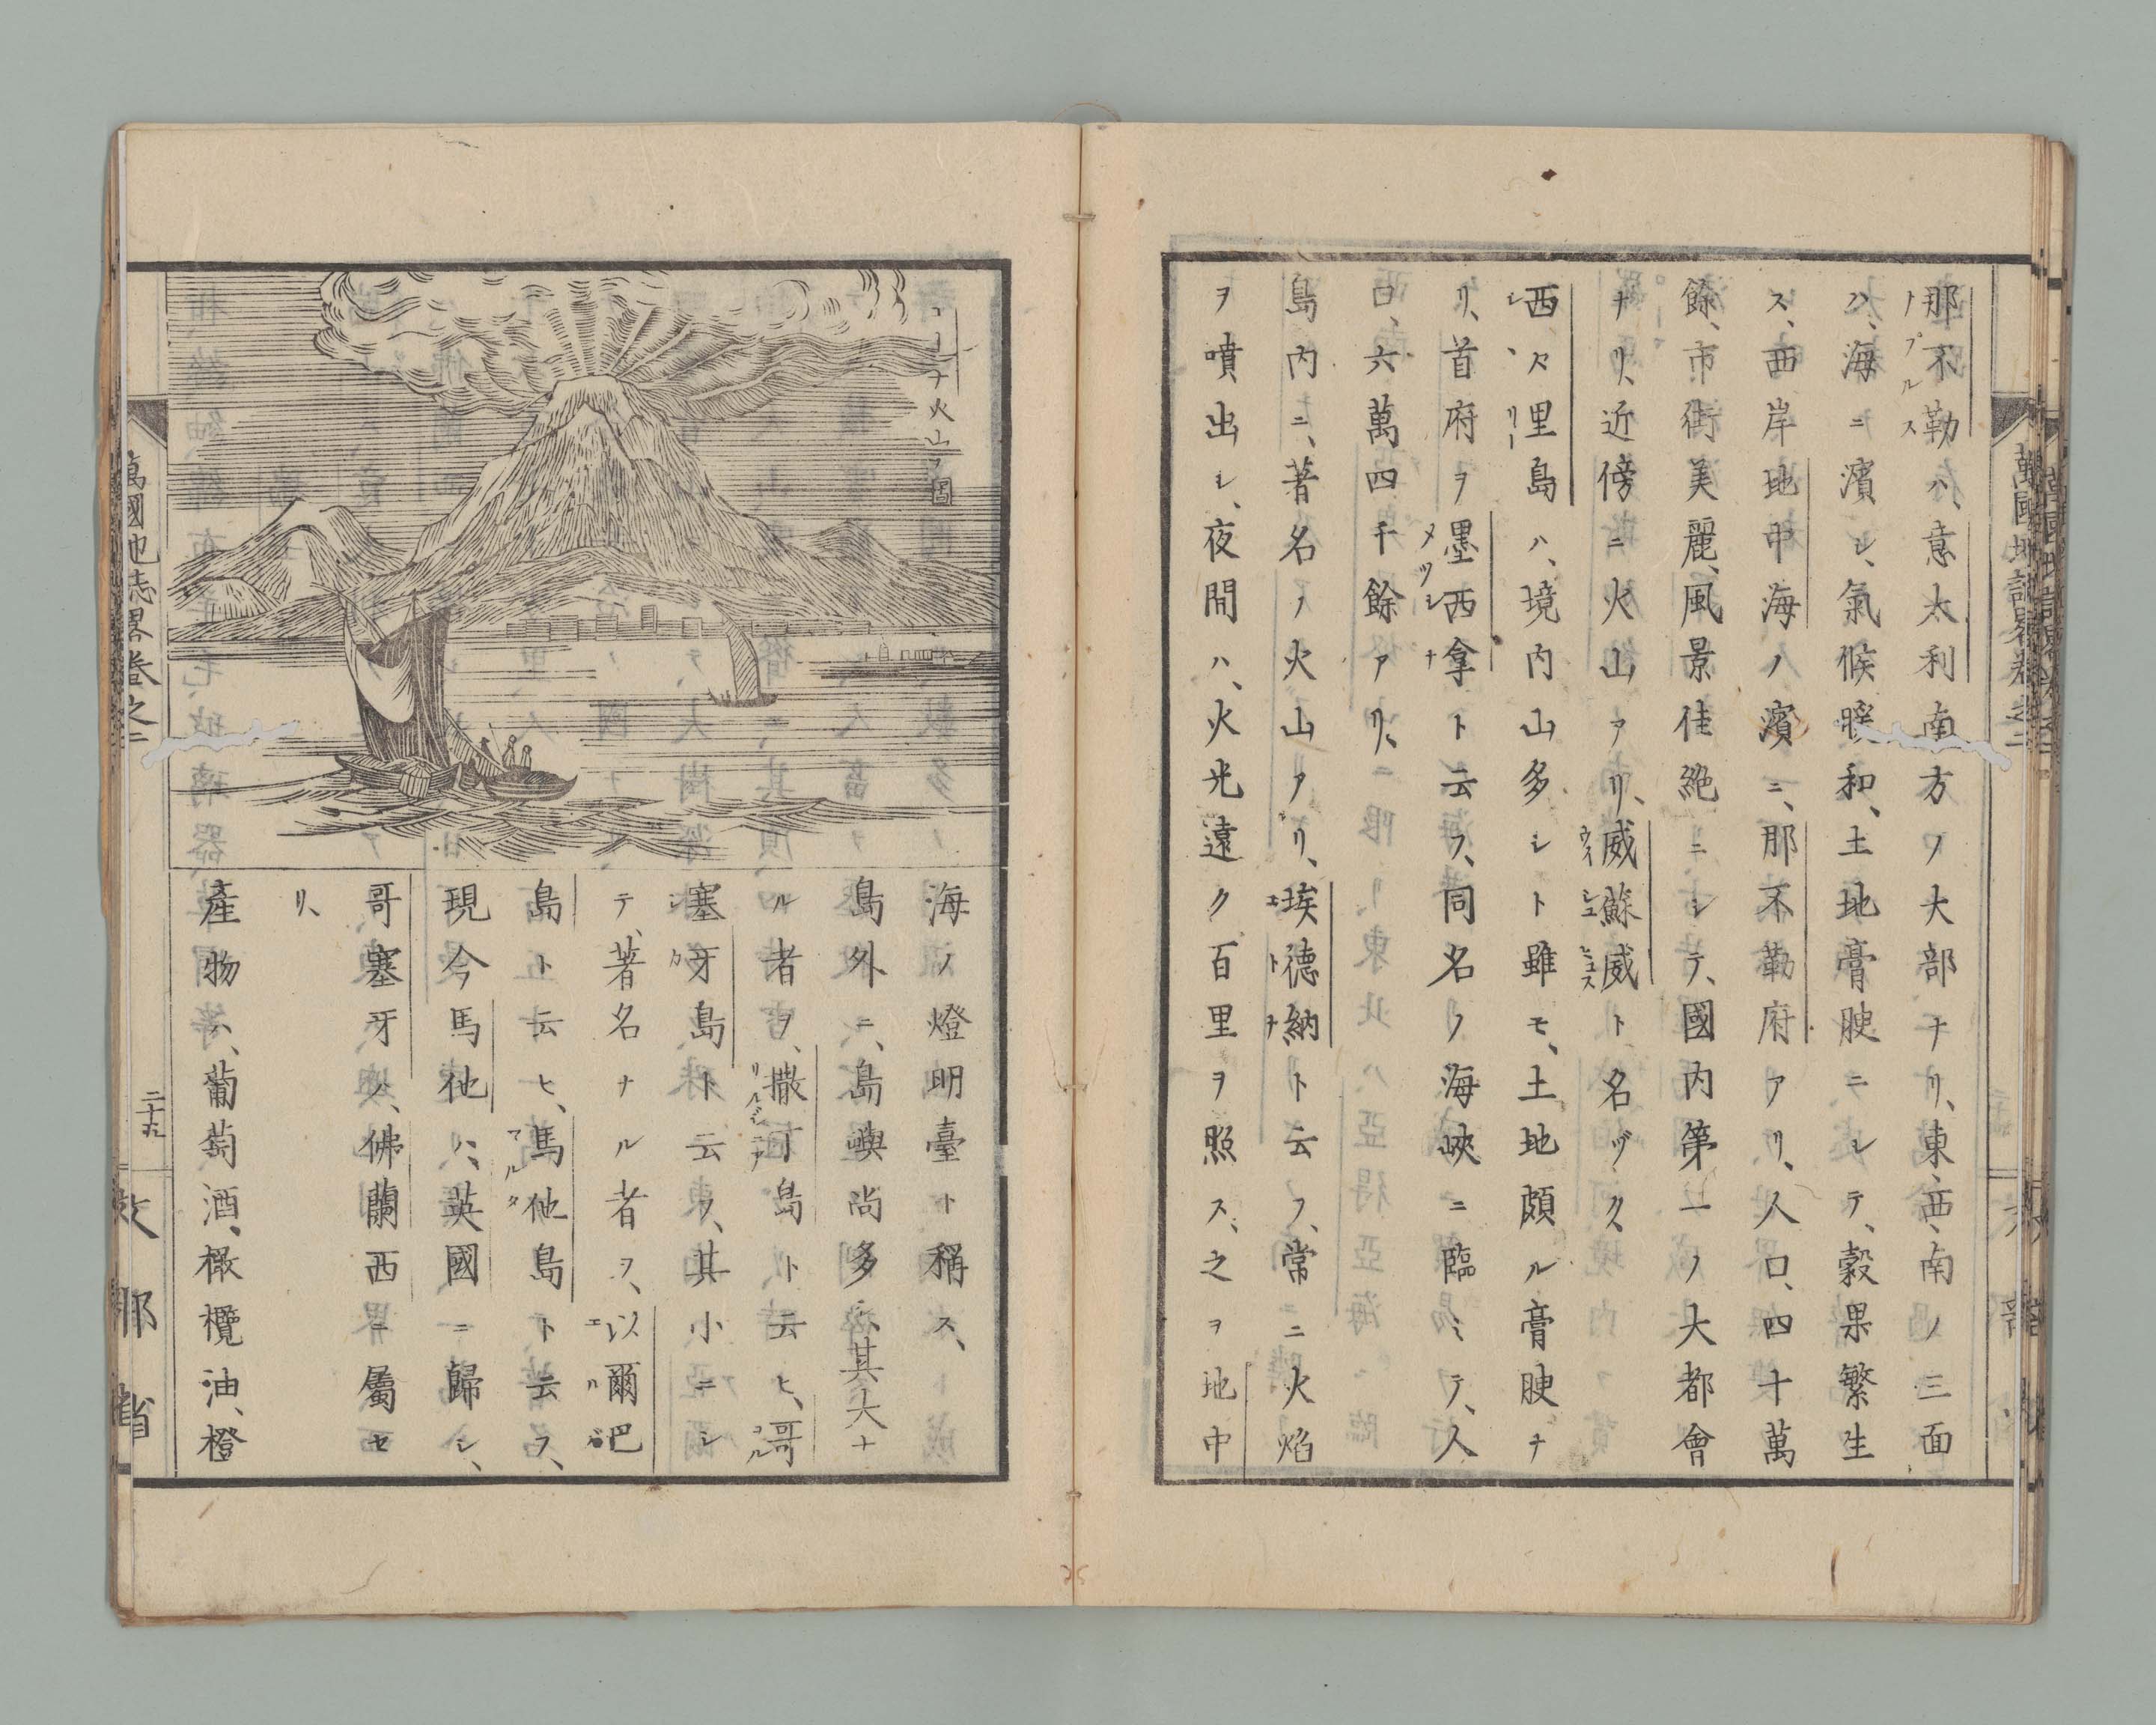 那不勒ハ、意太利南方ノ大部ナリ、東、西、南ノ三面
ノプルス
ハ、海ニ濱シ、氣候暖和、土地膏腴ニシテ、穀果繁生
ス、西岸地中海ノ濱ニ、那不勒府アリ、人口、四十萬
餘、市街美麗、風景佳絶ニシテ、國内第一ノ大都會
ナリ、近傍ニ火山アリ、威蘇威ト名ヅク、
西𠮷里島ハ、境内山多シト雖モ、土地頗ル膏腴ナ
シヽリー
リ、首府ヲ墨西拿ト云フ、同名ノ海峽ニ臨ミテ、人
メッシナ
口、六萬四千餘アリ、
島内ニ、著名ノ火山アリ、埃德納ト云フ、常ニ火焰
エトナ
ヲ噴出シ、夜間ハ、火光遠ク百里ヲ照ス、之ヲ地中
火山ノ圖
海ノ燈明臺ト稱ス、
島外ニ、島嶼尚多シ、其大ナ
ル者ヲ、撒丁島ト云ヒ、哥
塞牙島ト云フ、其小ニシ
シカ
テ、著名ナル者ヲ、以爾巴
エルバ
島ト云ヒ、馬他島ト云フ、
マルタ
現今馬他ハ、英國ニ歸シ、
哥塞牙ハ、佛蘭西ニ屬セ
リ、
產物ハ、葡萄酒、橄欖油、橙
萬國地誌畧卷之二
二十九
文部省